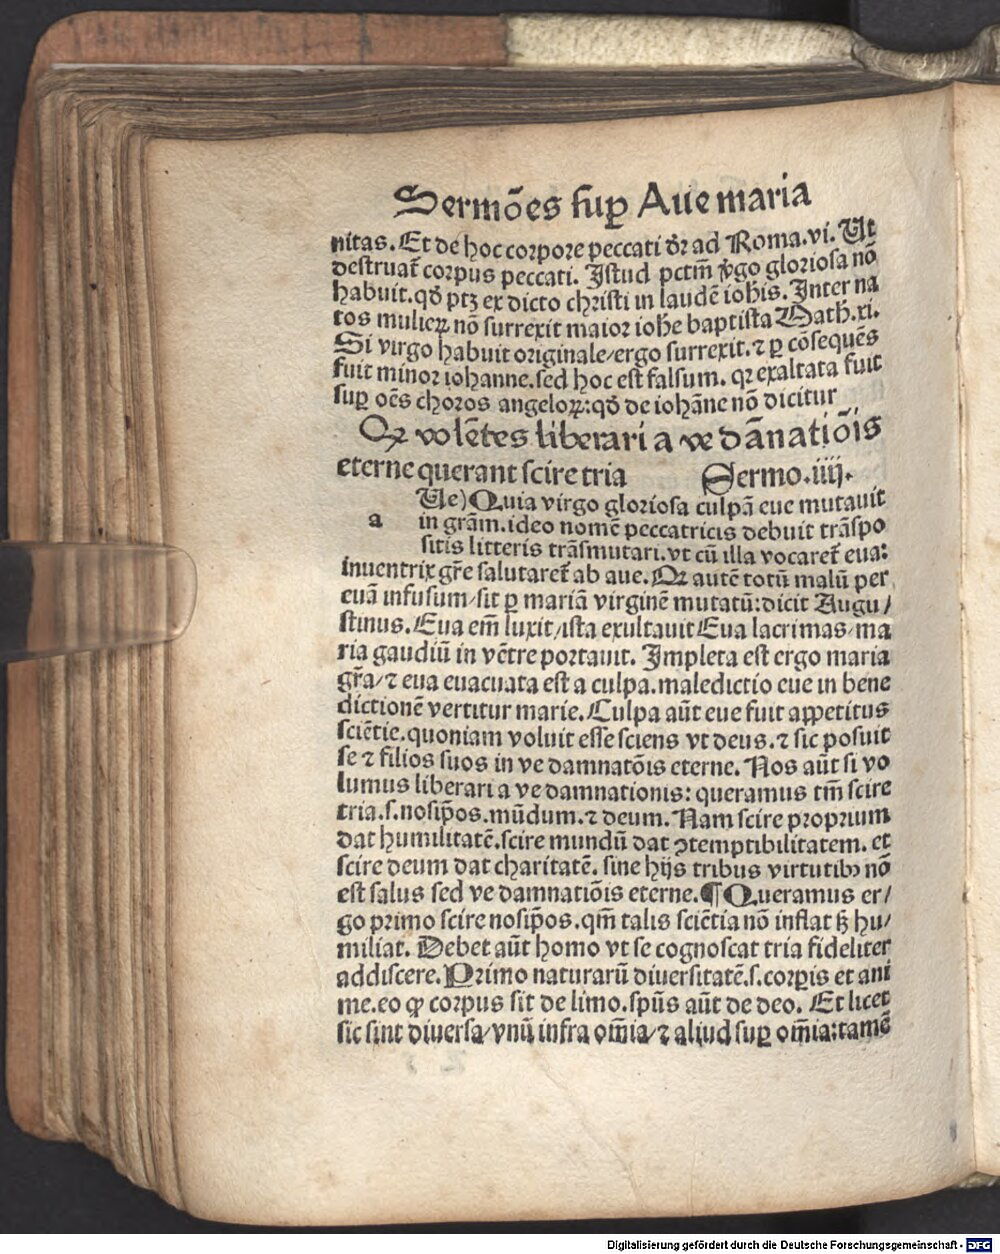 Sermões sup̱ Aue maria
nitas. Et de hoc corpore peccati dr̄ ad Roma. vi. Ut
destruat̄ corpus peccati. Istud pctm̄ v̓go gloriosa nō
habuit. qd̄ ptꝫ ex dicto christi in laudē iohis̄. Inter na
tos mulieꝝ nō surrexit maior iohē baptista Math̄. xi.
Si virgo habuit originale/ergo surrexit. ⁊ ꝑ cōsequēs
fuit minor iohanne. sed hoc est falsum. qꝛ exaltata fuit
suꝑ oēs choros angeloꝝ: qd̄ de iohāne nō dicitur
Qꝛ volētes liberari a ve dānatiōis
eterne querant scire tria Sermo. iiij.
Ue) Quia virgo gloriosa culpā eue mutauit
a in grām. ideo nomē peccatricis debuit trāspo
sitis litteris trāsmutari. vt cū illa vocaret̄ eua:
inuentrix gr̄e salutaret̄ ab aue. Qꝛ autē totū malū per
euā infusum/sit ꝑ mariā virginē mutatū: dicit Augu/
stinus. Eua em̄ luxit/ista exultauit Eua lacrimas/ma
ria gaudiū in vētre portauit. Impleta est ergo maria
gr̄a/⁊ eua euacuata est a culpa. maledictio eue in bene
dictionē vertitur marie. Culpa aūt eue fuit appetitus
sciētie. quoniam voluit esse sciens vt deus. ⁊ sic posuit
se ⁊ filios suos in ve damnatōis eterne. Nos aūt si vo
lumus liberari a ve damnationis: queramus tm̄ scire
tria. s. nosip̄os. mūdum. ⁊ deum. Nam scire proprium
dat humilitatē. scire mundū dat ↄtemptibilitatem. et
scire deum dat charitatē. sine hijs tribus virtutibꝰ nō
est salus sed ve damnatiōis eterne. ¶ Queramus er/
go primo scire nosip̄os. qm̄ talis sciētia nō inflat sꝫ hu/
miliat. Debet aūt homo vt se cognoscat tria fideliter
addiscere. Primo naturarū diuersitatē. s. corꝑis et ani
me. eo ꝙ corpus sit de limo. spūs aūt de deo. Et licet
sic sint diuersa/vnū infra om̄ia/⁊ aliud suꝑ om̄ia: tamē
Digitalisierung gefördert durch die Deutsche Forschungsgemeinschaft - DFG